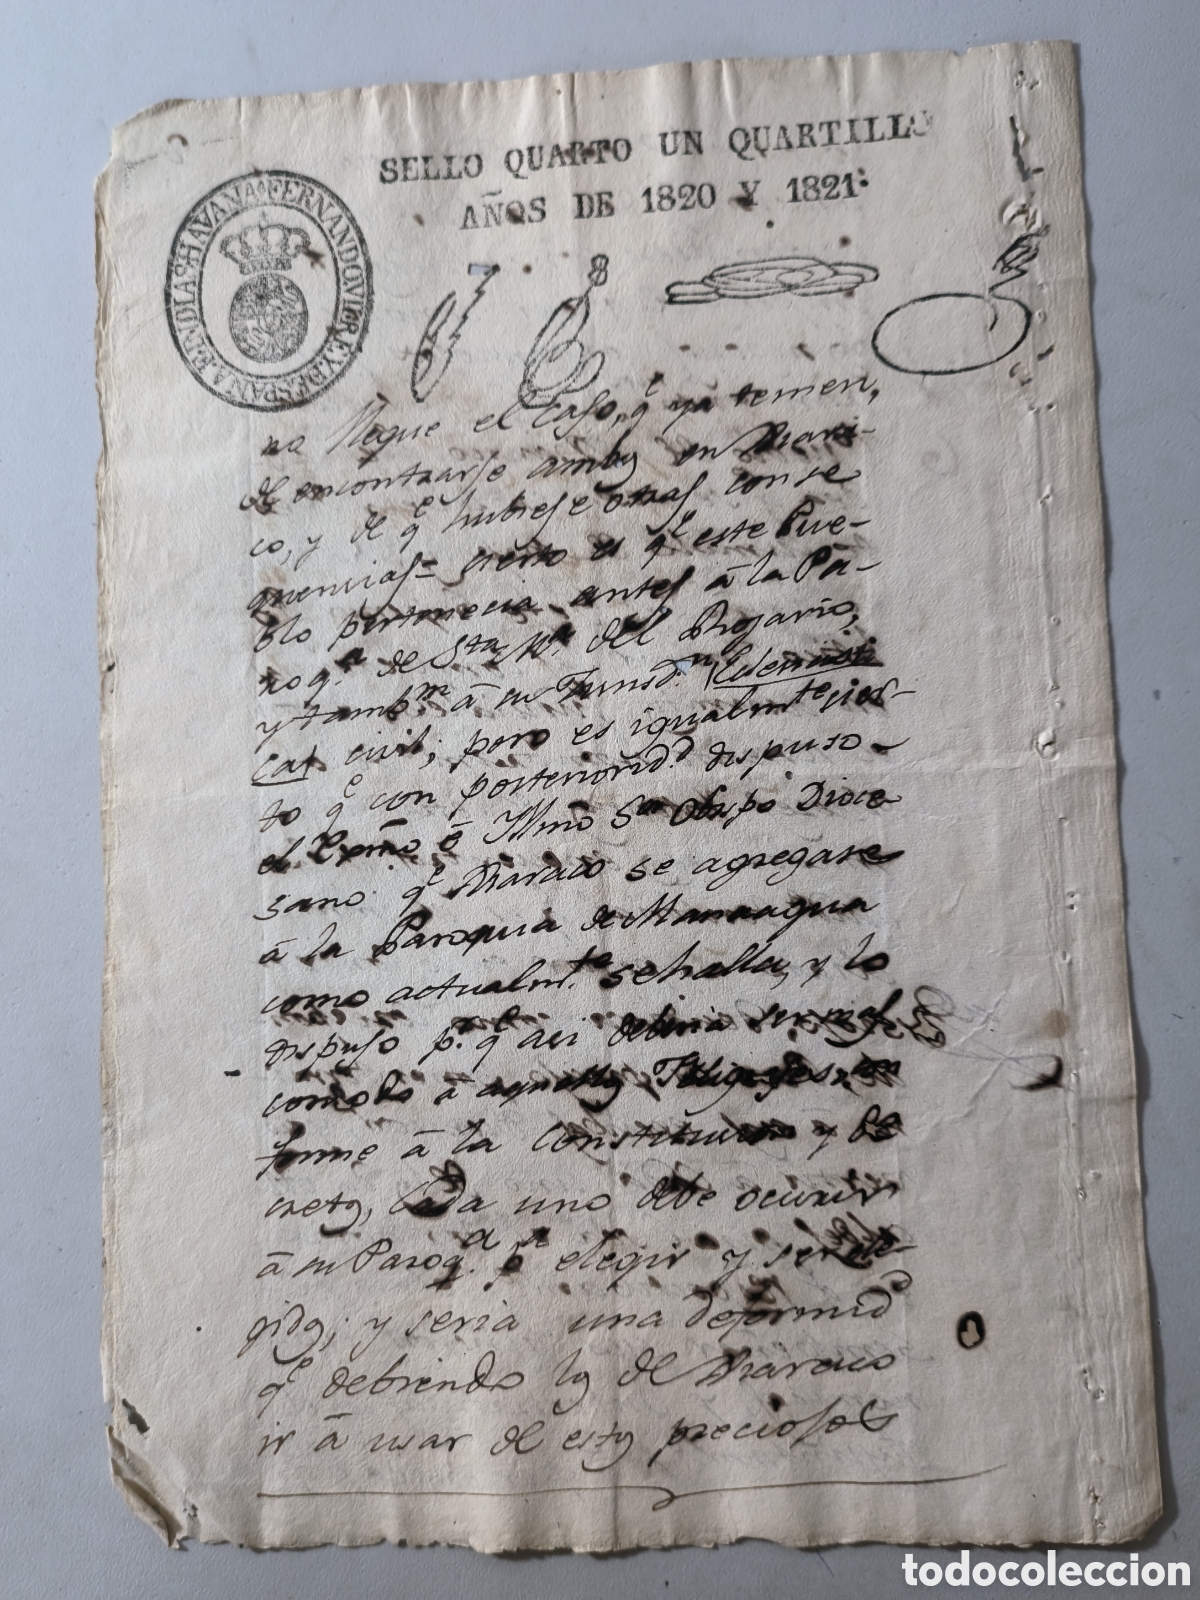 SELLO QUARTO UN QUARTILLO
AÑOS DE 1820 Y 1821.
HAVANA. FERNANDO VII REY DE ESPAÑA E INDIAS
no llegue el caso, q.e ya temen,
de encontrarse ambos en
co, y de q.e hubiese otras conse
quencias = cierto es q.e este Pue-
blo pertenecia antes â la Pa-
rroq.a de Sta M.a del Rosario,
y tamb.n â su Jurisd.n Eclesiasti
cat civil; pero es igualm.te cier-
to q.e con posteriorid.d dispuso
el Exmo ê Illmo Sor Obispo Dioce
sano q.e Maraco se agregase
â la Parroquia de Managua
como actualm.te se halla, y lo
dispuso p.r q.e asi deberia ser mas
comodo â aquellos Feligreses, con
forme â la Constitucion y De
cretos, Cada uno debe ocurrir
â su Parroq.a p.a elegir y ser ele-
gidos; y seria una deformid.d
q.e debiendo los de Maraco
ir â usar de estos preciosos
todocoleccion